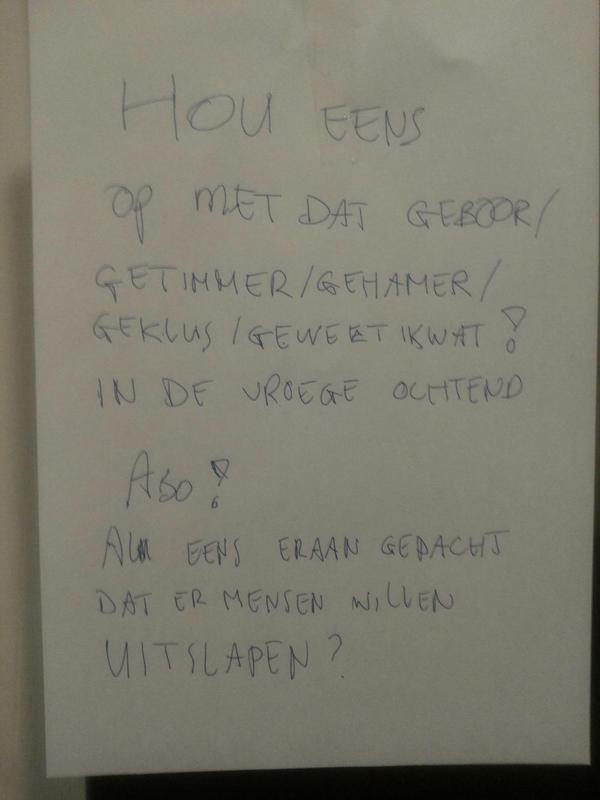 HOU EENS
OP MET DAT GEBOOR/
GETIMMER/GEHAMER/
GEKLUS/GEWEETIKWAT!
IN DE VROEGE OCHTEND
ASO!
AL EENS ERAAN GEDACHT
DAT ER MENSEN WILLEN
UITSLAPEN?